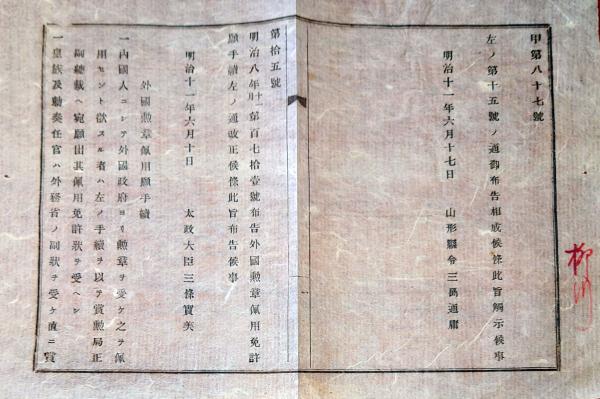 甲第八十七號
左ノ第十五號ノ通御布告相成候條此旨觸示候事
明治十一年六月十七日　山形縣令三島通庸
第拾五號
明治八年十一月第百七拾壹號布告外國勲章佩用免許
願手續左ノ通改正候條此旨布告候事
明治十一年六月十日　太政大臣三條實美
外國勲章佩用願手續
一內國人ニシテ外國政府ヨリ勲章ヲ受ケ之ヲ佩
用セント欲スル者ハ左ノ手續ヲ以テ賞勲局正
副總裁ヘ宛願出其佩用免許狀ヲ受ヘシ
一皇族及勅奏任官ハ外務省ノ副狀ヲ受ケ直ニ賞
柳川